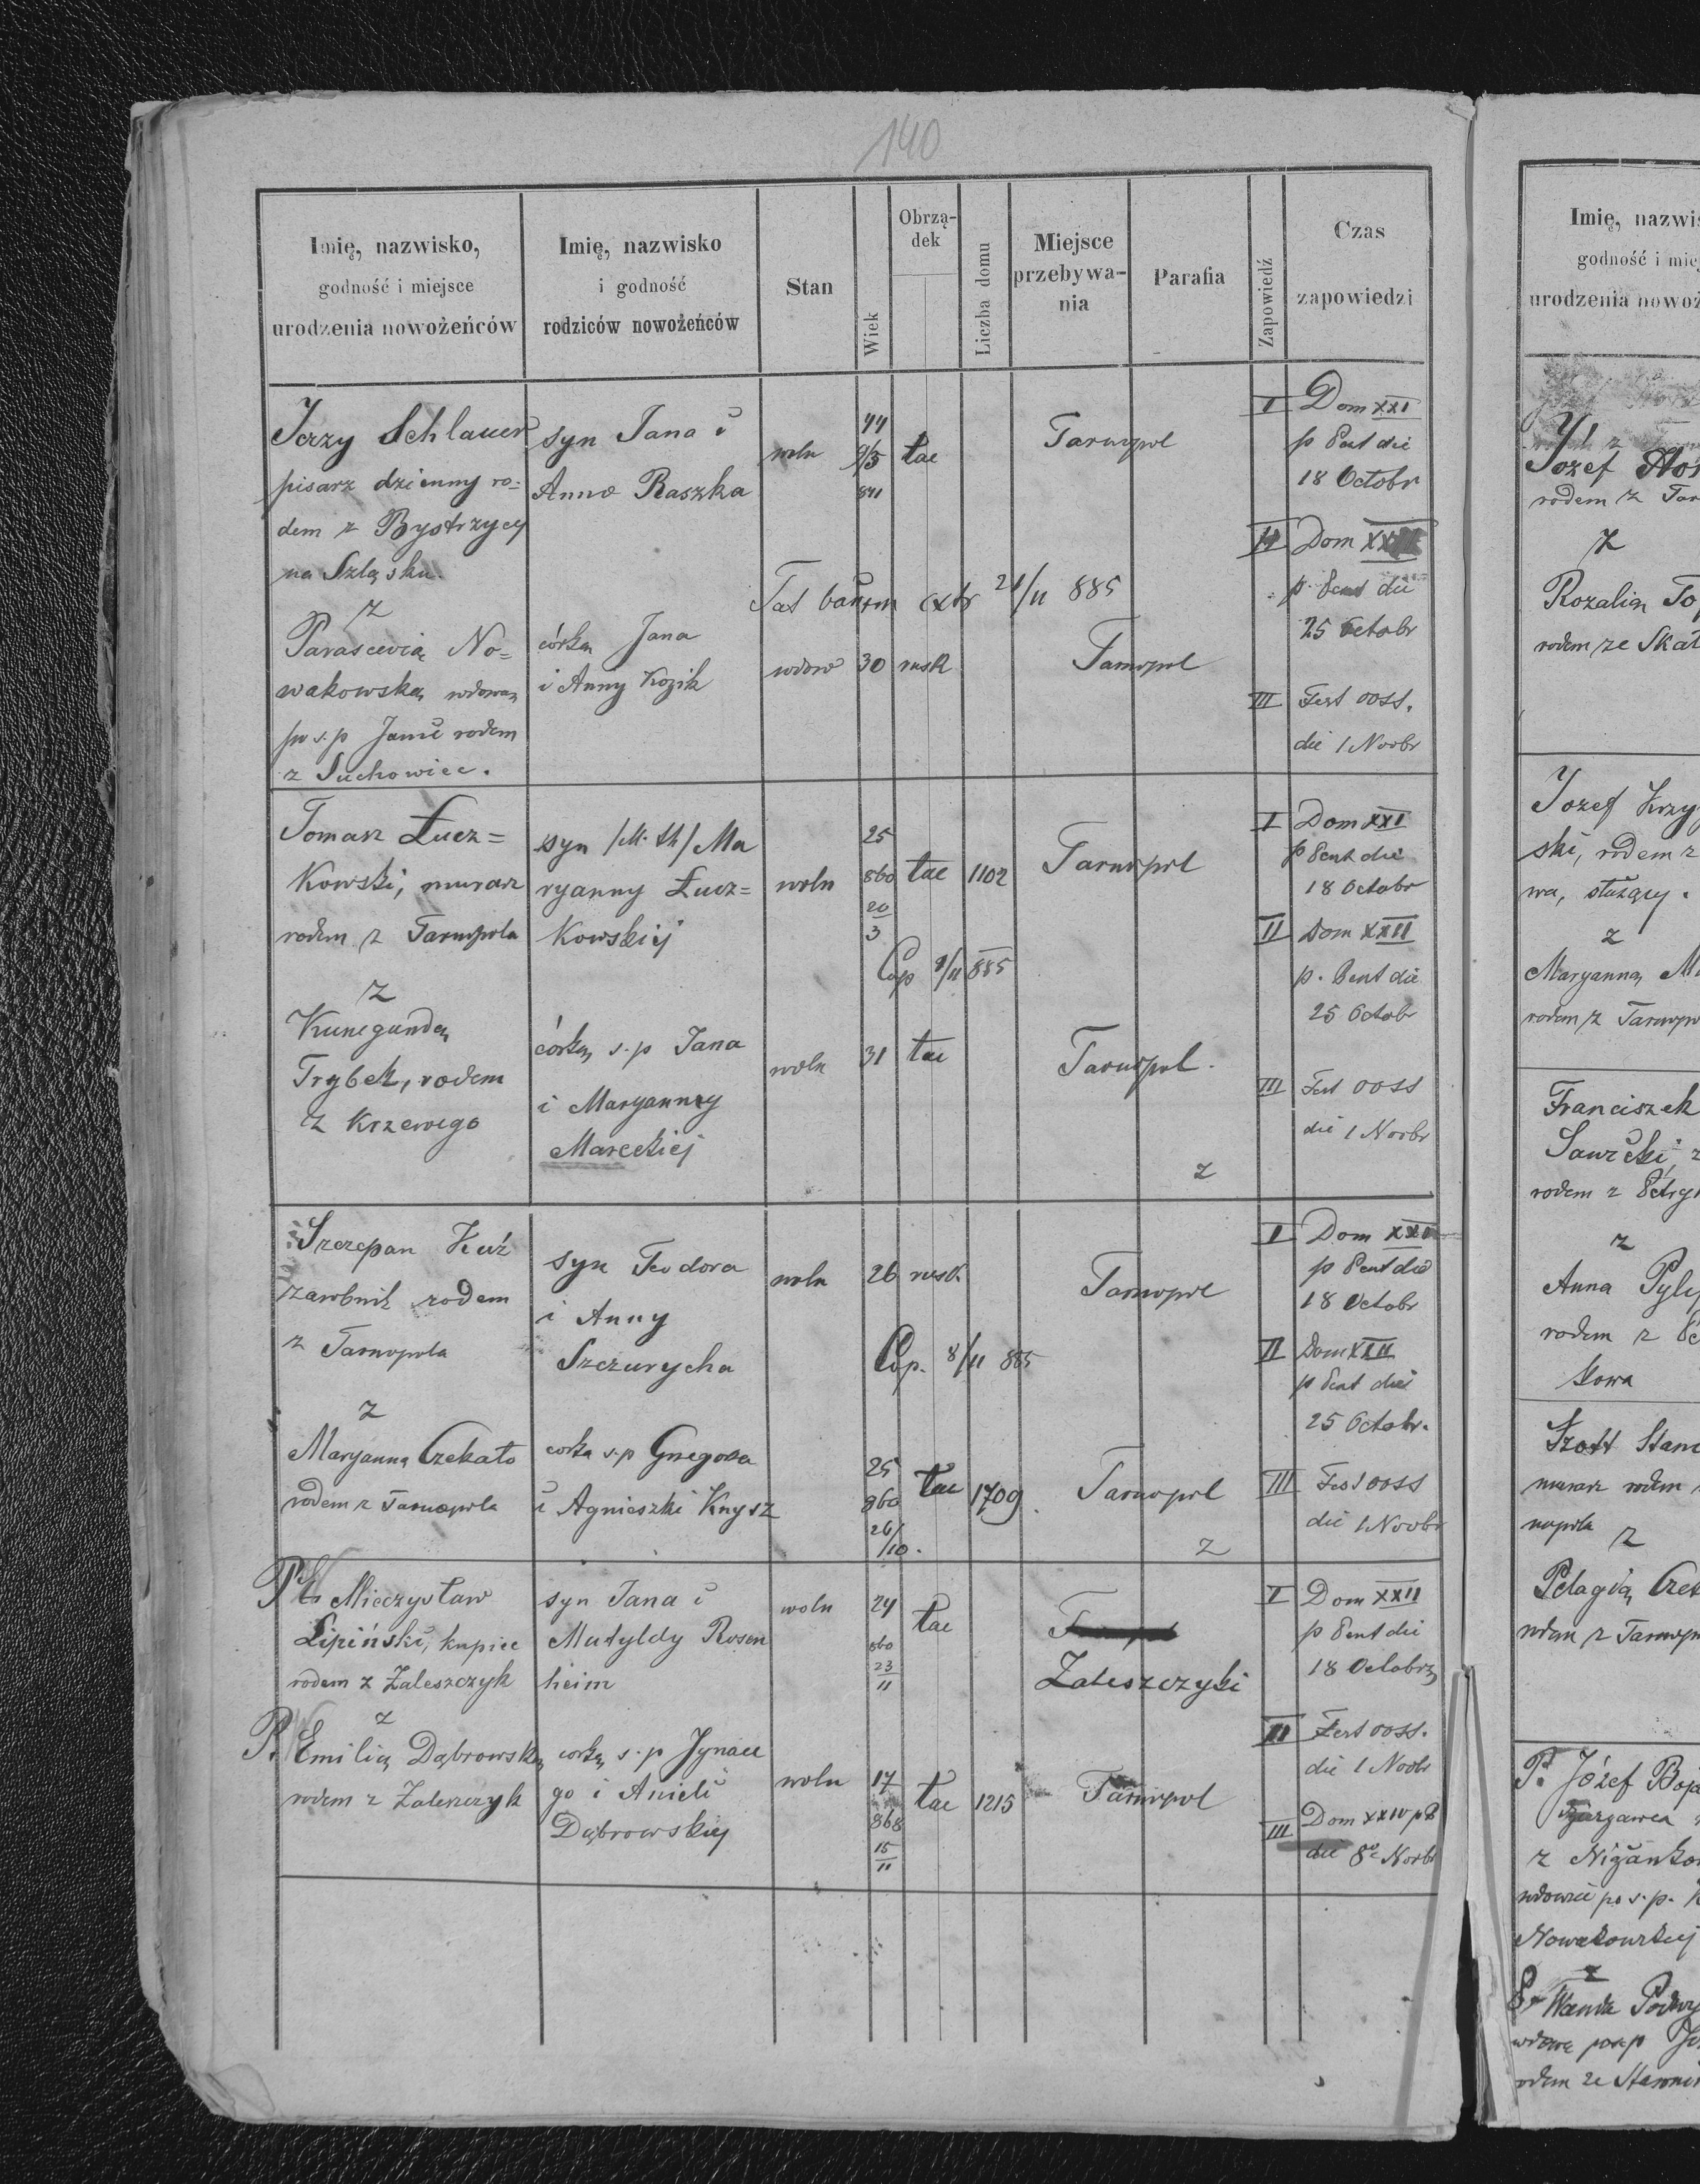 140
Imię, nazwisko,
godność i miejsce
urodzenia nowożeńców
Imię, nazwisko
i godność
rodziców nowożeńców
Stan
Wiek
Obrzą-
dek
Liczba domu
Miejsce
przebywa-
nia
Parafia
Zapowiedź
Czas
zapowiedzi
Jerzy Schlauer
pisarz dzienny ro=
dem z Bystrzycy
na Szląsku.
z
Parascevią No=
wakowską wdową
po s.p Janie rodem
z Suchowiec.
syn Jana i
Anna Raszka
córką Jana
i Anny Kozik
woln
44
9/5
841
Tarnopol
extr 21/11 885
wdow
30
rusk
Tarnopol
I Dom XXI
p Pent die
18 Octobr
II Dom
p. Pent die
25 Octobr
III Fest OOSS.
die 1 Novbr
Tomasz Łucz=
kowski, murarz
rodem z Tarnopola
z
Kunegundą
Trybek, rodem
z Krzewego
syn /M. th/ Ma
ryanny Łucz=
kowskiej
córką s.p Jana
i Maryanny
Mareckiej
woln
25
860
20
3
1102
Tarnopol
Cop 8/11 885
woln
31
Tarnopol.
z
I Dom XXI
p Pent die
18 Octobr
II Dom XXII
p. Pent die
25 Octobr
III Fest OOSS
die 1 Novbr
Szczepan Kuź
zarobnik rodem
z Tarnopola
z
Maryanną Czekało
rodem z Tarnopola
syn Teodora
i Anny
Szczurycha
corka s.p Gregora
i Agnieszki Knysz
woln
26
rusk.
Tarnopol
Cop. 8/11 885
25
860
26/
/10.
1709
Tarnopol
z
I Dom XXI
p Pent die
18 Octobr
II Dom XXII
p Pent die
25 Octobr.
III Fest OOSS
die 1 Novbr
Mieczysław
Lipiński, kupiec
rodem z Zaleszczyk
z
P. Emilią Dąbrowską
rodem z Zaleszczyk
syn Jana i
Matyldy Rosen
heim
corką s.p Ignace
go i Anieli
Dąbrowskiej
woln
24
860
23
11
Zaleszczyki
woln
17
868
15
11
1215
Tarnopol
I Dom XXII
p Pent die
18 Octobr
II Fest OOSS.
die 1 Novbr
III Dom XXIV p P
die 8 Novbr
Imię, nazwis
godność i miej
urodzenia nowoż
Jozef
rodem z Tar
z
Rozalią To
rodem ze Skał
Jozef Krzy
ski, rodem z
wa, służący.
z
Maryanną M
rodem z Tarnop
Franciszek
rodem z Petry
z
Anna Pyly
rodem z
kowa
Szott Stan
murarz rodem
nopola
z
Pelagią Cze
rodem z Tarnop
P. Józef Boja
z Niżanko
wdowiec po s.p.
Nowakowskiej
z
Wanda